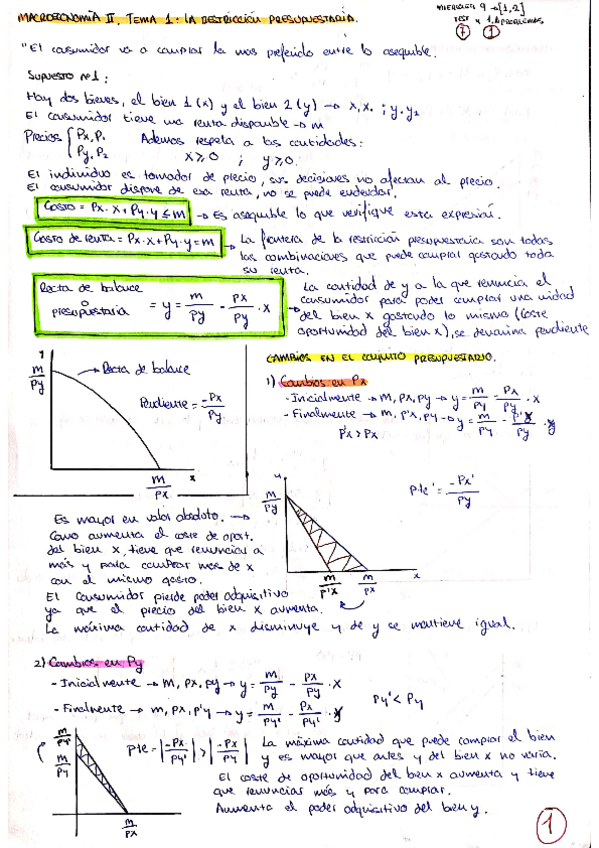 MACROECONOMÍA II, TEMA 1: LA RESTRICCIÓN PRESUPUESTARIA.
MIERCOLES 9 → [1,2]
TEST 4 1,2 PROBLEMAS
7 1
"El consumidor va a comprar lo mas preferido entre lo asequible.
SUPUESTO Nº1:
Hay dos bienes, el bien 1 (x) y el bien 2 (y) → x, x₁ ; y, y₂
El consumidor tiene una renta disponible → m
Precios { Px, P₁
Py, P₂
Ademas respeta a las cantidades:
x ≥ 0 ; y ≥ 0.
El individuo es tomador de precio, sus decisiones no afectan al precio.
El consumidor dispone de esa renta, no se puede endeudar.
Gasto = Px · x + Py · y ≤ m → Es asequible lo que verifique esta expresión.
Gasto de renta = Px · x + Py · y = m → La frontera de la restricción presupuestaria son todas
las combinaciones que puede comprar gastando toda
su renta.
Recta de balance
o
presupuestaria = y = m/Py - Px/Py · x
→ La cantidad de y a la que renuncia el
consumidor para poder comprar una unidad
del bien x gastando lo mismo (coste
oportunidad del bien x), se denomina pendiente
m/Py
→ Recta de balance
Pendiente = -Px/Py
m/Px
x
CAMBIOS EN EL CONJUNTO PRESUPUESTARIO.
1) Cambios en Px
- Inicialmente → m, Px, Py → y = m/Py - Px/Py · x
- Finalmente → m, P'x, Py → y = m/Py - P'x/Py ·
P'x > Px
m/Py
Pte' = -Px'/Py
m/P'x m/Px x
Es mayor en valor absoluto. →
Como aumenta el coste de oport.
del bien x, tiene que renunciar a
más y para comprar mas de x
con el mismo gasto.
El consumidor pierde poder adquisitivo
ya que el precio del bien x aumenta.
La máxima cantidad de x disminuye y de y se mantiene igual.
2) Cambios en Py
- Inicialmente → m, Px, Py → y = m/Py - Px/Py · x
- Finalmente → m, Px, P'y → y = m/Py' - Px/Py' ·
Py' < Py
m/Py'
m/Py
m/Px
Pte = |-Px/Py'| > |-Px/Py|
La máxima cantidad que puede comprar el bien
y es mayor que antes y del bien x no varía.
El coste de oportunidad del bien x aumenta y tiene
que renunciar más y para comprar.
Aumenta el poder adquisitivo del bien y.
1